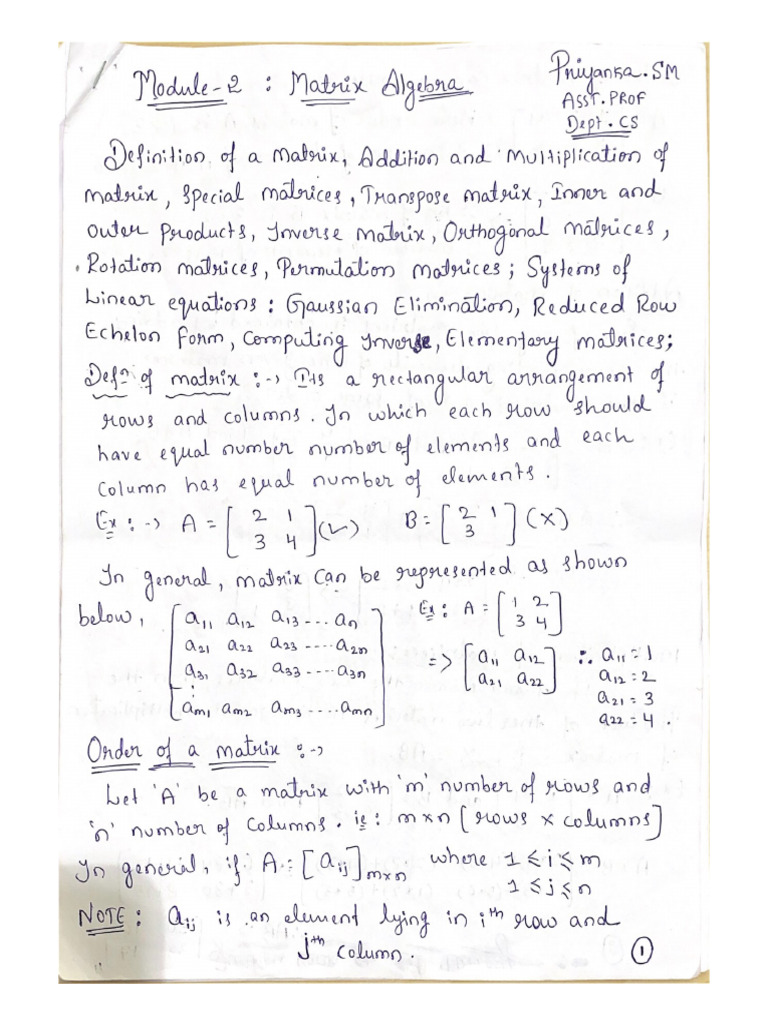 Module-2 : Matrix Algebra
Priyanka.SM
ASST.PROF
Dept.CS
Definition of a matrix, Addition and Multiplication of
matrix, Special matrices, Transpose matrix, Inner and
outer Products, Inverse matrix, Orthogonal matrices,
Rotation matrices, Permutation matrices; Systems of
Linear equations: Gaussian Elimination, Reduced Row
Echelon Form, Computing Inverse, Elementary matrices;
Defn of matrix :-> Its a rectangular arrangement of
rows and columns. In which each row should
have equal number number of elements and each
column has equal number of elements.
Ex :-> A = [2 1 (✓) B = [2 1 ] (X)
3 4] 3
In general, matrix can be represented as shown
below, Ex: A = [1 2
3 4]
[a11 a12 a13 ... an
a21 a22 a23 ---- a2n
a31 a32 a33 ---- a3n
⋮
am1 am2 am3 .... amn]
=> [a11 a12
a21 a22]
∴ a11 = 1
a12 = 2
a21 = 3
a22 = 4.
Order of a matrix :->
Let 'A' be a matrix with 'm' number of rows and
'n' number of columns. ie: m×n [rows × columns]
In general, if A = [aij]m×n where 1 ≤ i ≤ m
1 ≤ j ≤ n
NOTE: aij is an element lying in ith row and
jth column.
1